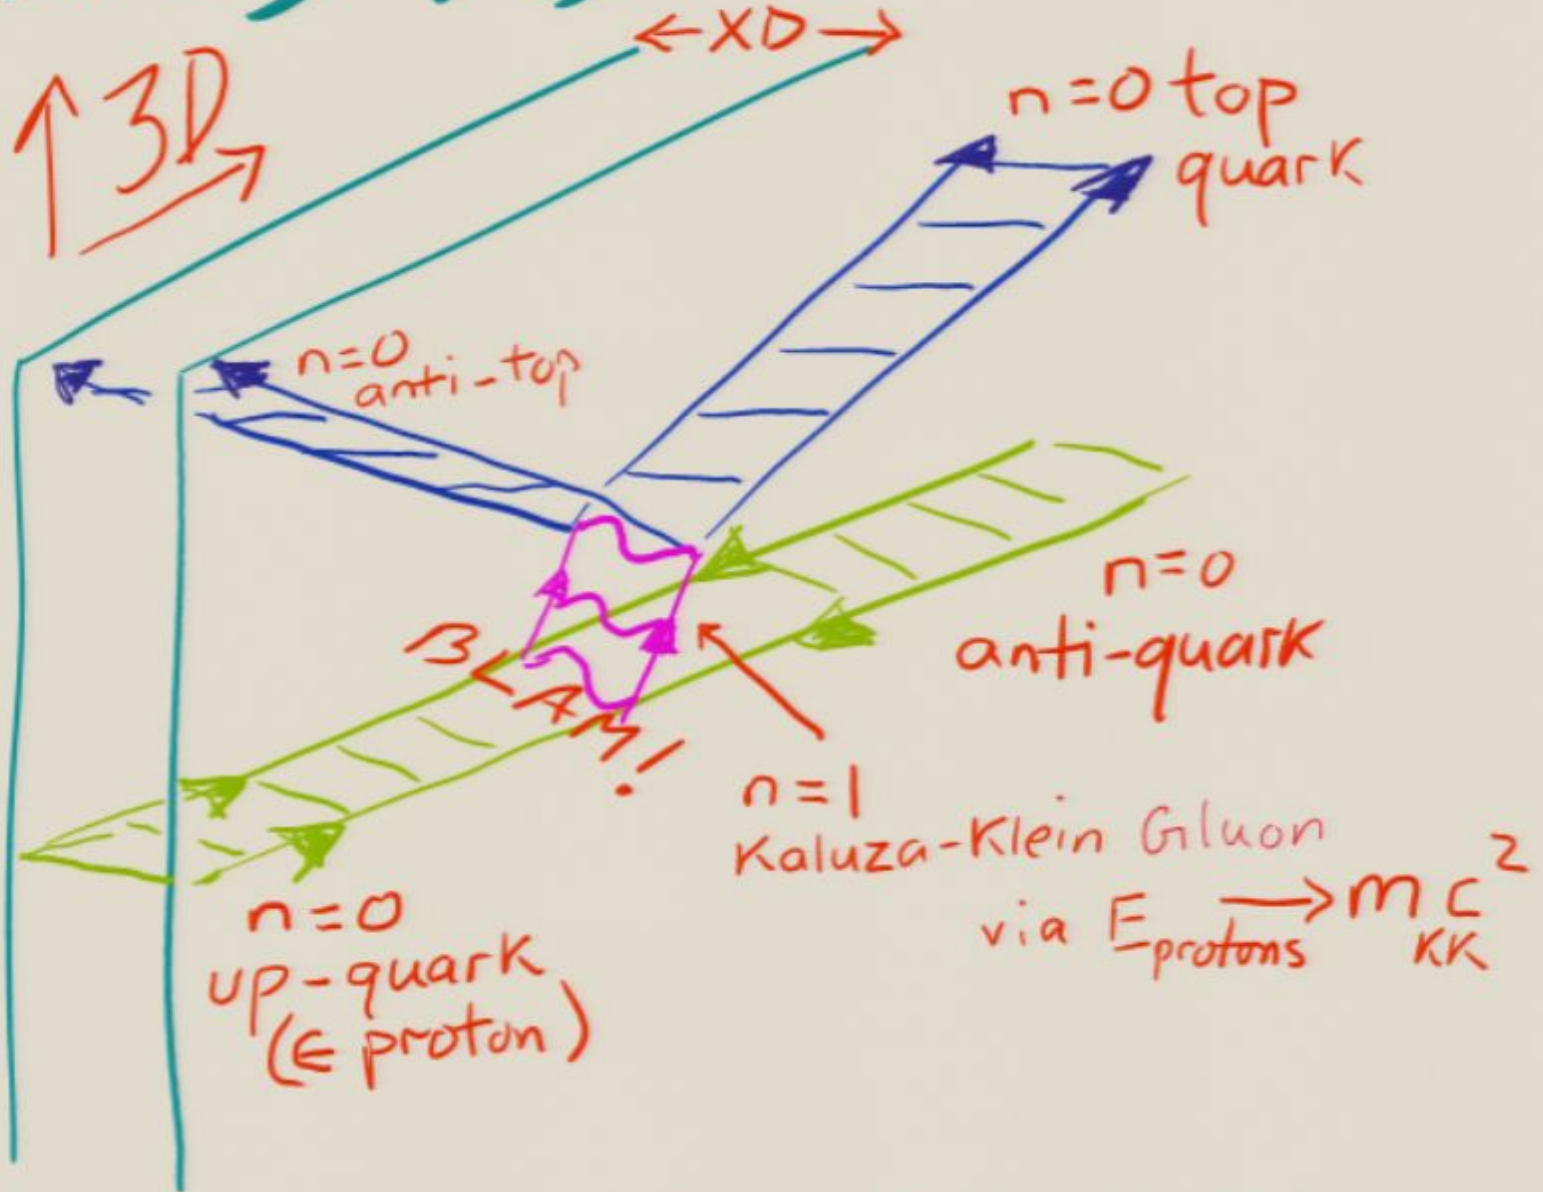 ← XD →
3D
n=0 top
quark
n=0
anti-top
n=0
anti-quark
BAM!
n=1
Kaluza-Klein Gluon
via E protons → m KK c²
n=0
up-quark
(∈ proton)